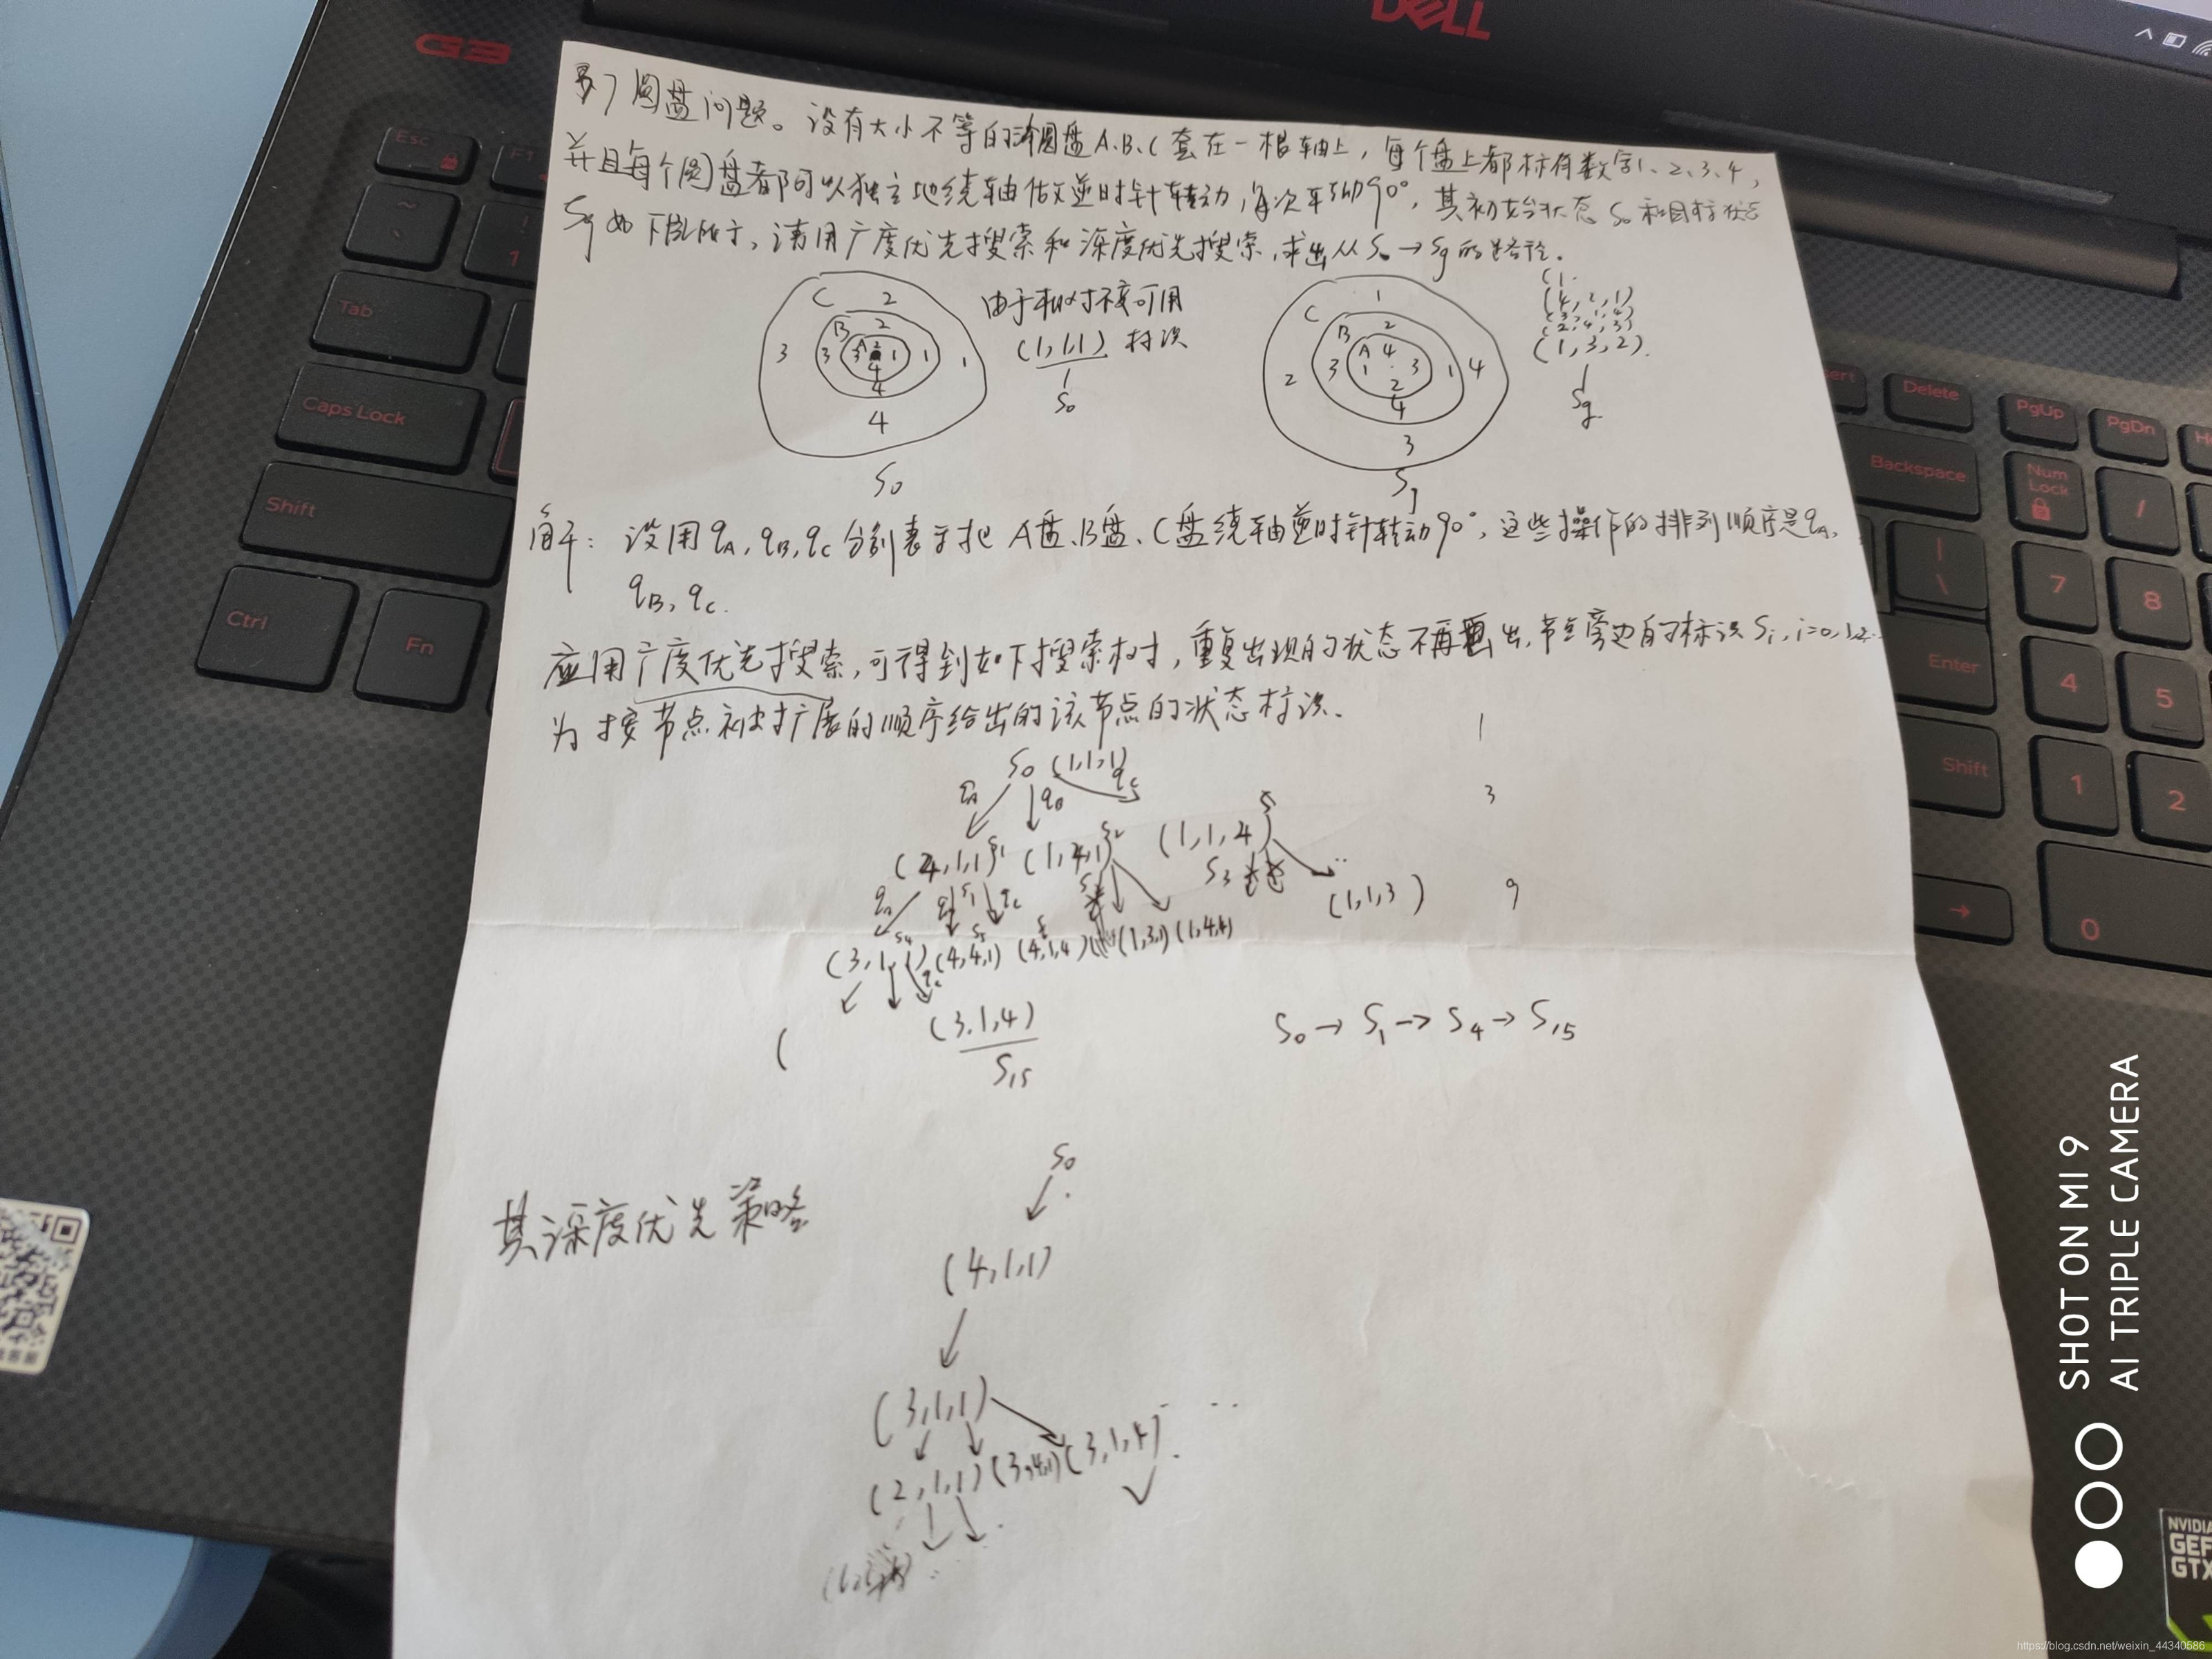 DELL
G3
圆盘问题。设有大小不等的圆盘A、B、C套在一根轴上，每个盘上都标有数字1、2、3、4，
并且每个圆盘都可以独立地绕轴做逆时针转动，每次转动90°，其初始状态S0和目标状态
Sg如下图所示，请用广度优先搜索和深度优先搜索，求出从S0→Sg的路径。
C 2
B 2
3 3 A 2 1 1 1
3
4
4
4
S0
由于相对不变可用
(1,1,1) 标识
S0
1
C
B 2
A 4
2 3 1 3 1 4
2
4
3
Sg
(1
(4,2,1)
(2,4,3)
(1,3,2).
Sg
解：设用qA,qB,qC分别表示把A盘、B盘、C盘绕轴逆时针转动90°，这些操作的排列顺序是qA,
qB, qC.
应用广度优先搜索，可得到如下搜索树，重复出现的状态不再画出，节点旁边的标识Si, i=0,1,2..
为按节点被扩展的顺序给出的该节点的状态标识.
S0 (1,1,1) 1
qA qB qC 3
(4,1,1) S1 (1,4,1) S2 (1,1,4)
S3
(1,1,3) 9
(3,1,1) S4 (4,4,1) S5 (4,1,4) (1,3,1) (1,4,4)
qC
( (3,1,4)
S15
S0→S1→S4→S15
其深度优先策略
S0
(4,1,1)
(3,1,1)
(2,1,1) (3,4,1) (3,1,4)
Esc
F1
~
!
1
Tab
Caps Lock
Shift
Ctrl
Fn
Delete
Backspace
PgUp
PgDn
Num
Lock
/
|
\
7
8
Enter
4
5
Shift
1
2
→
0
NVIDIA
GTX
SHOT ON MI 9
AI TRIPLE CAMERA
https://blog.csdn.net/weixin_44340586